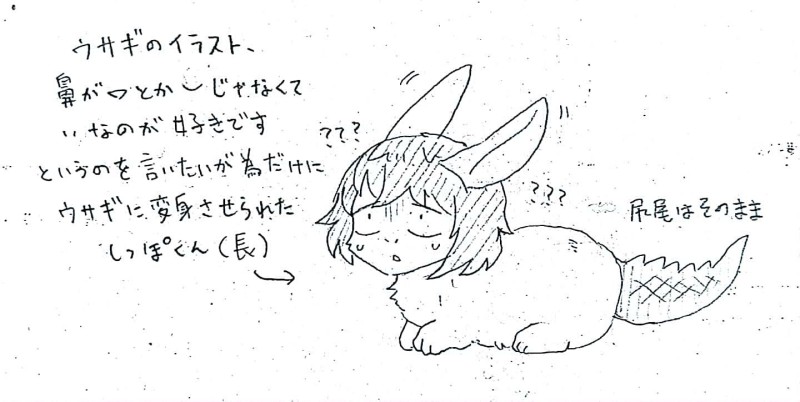 ウサギのイラスト、
鼻が▽とか‿じゃなくて
ヽヽなのが好きです
というのを言いたいが為だけに
ウサギに変身させられた
しっぽくん(長)
???
???
尻尾はそのまま